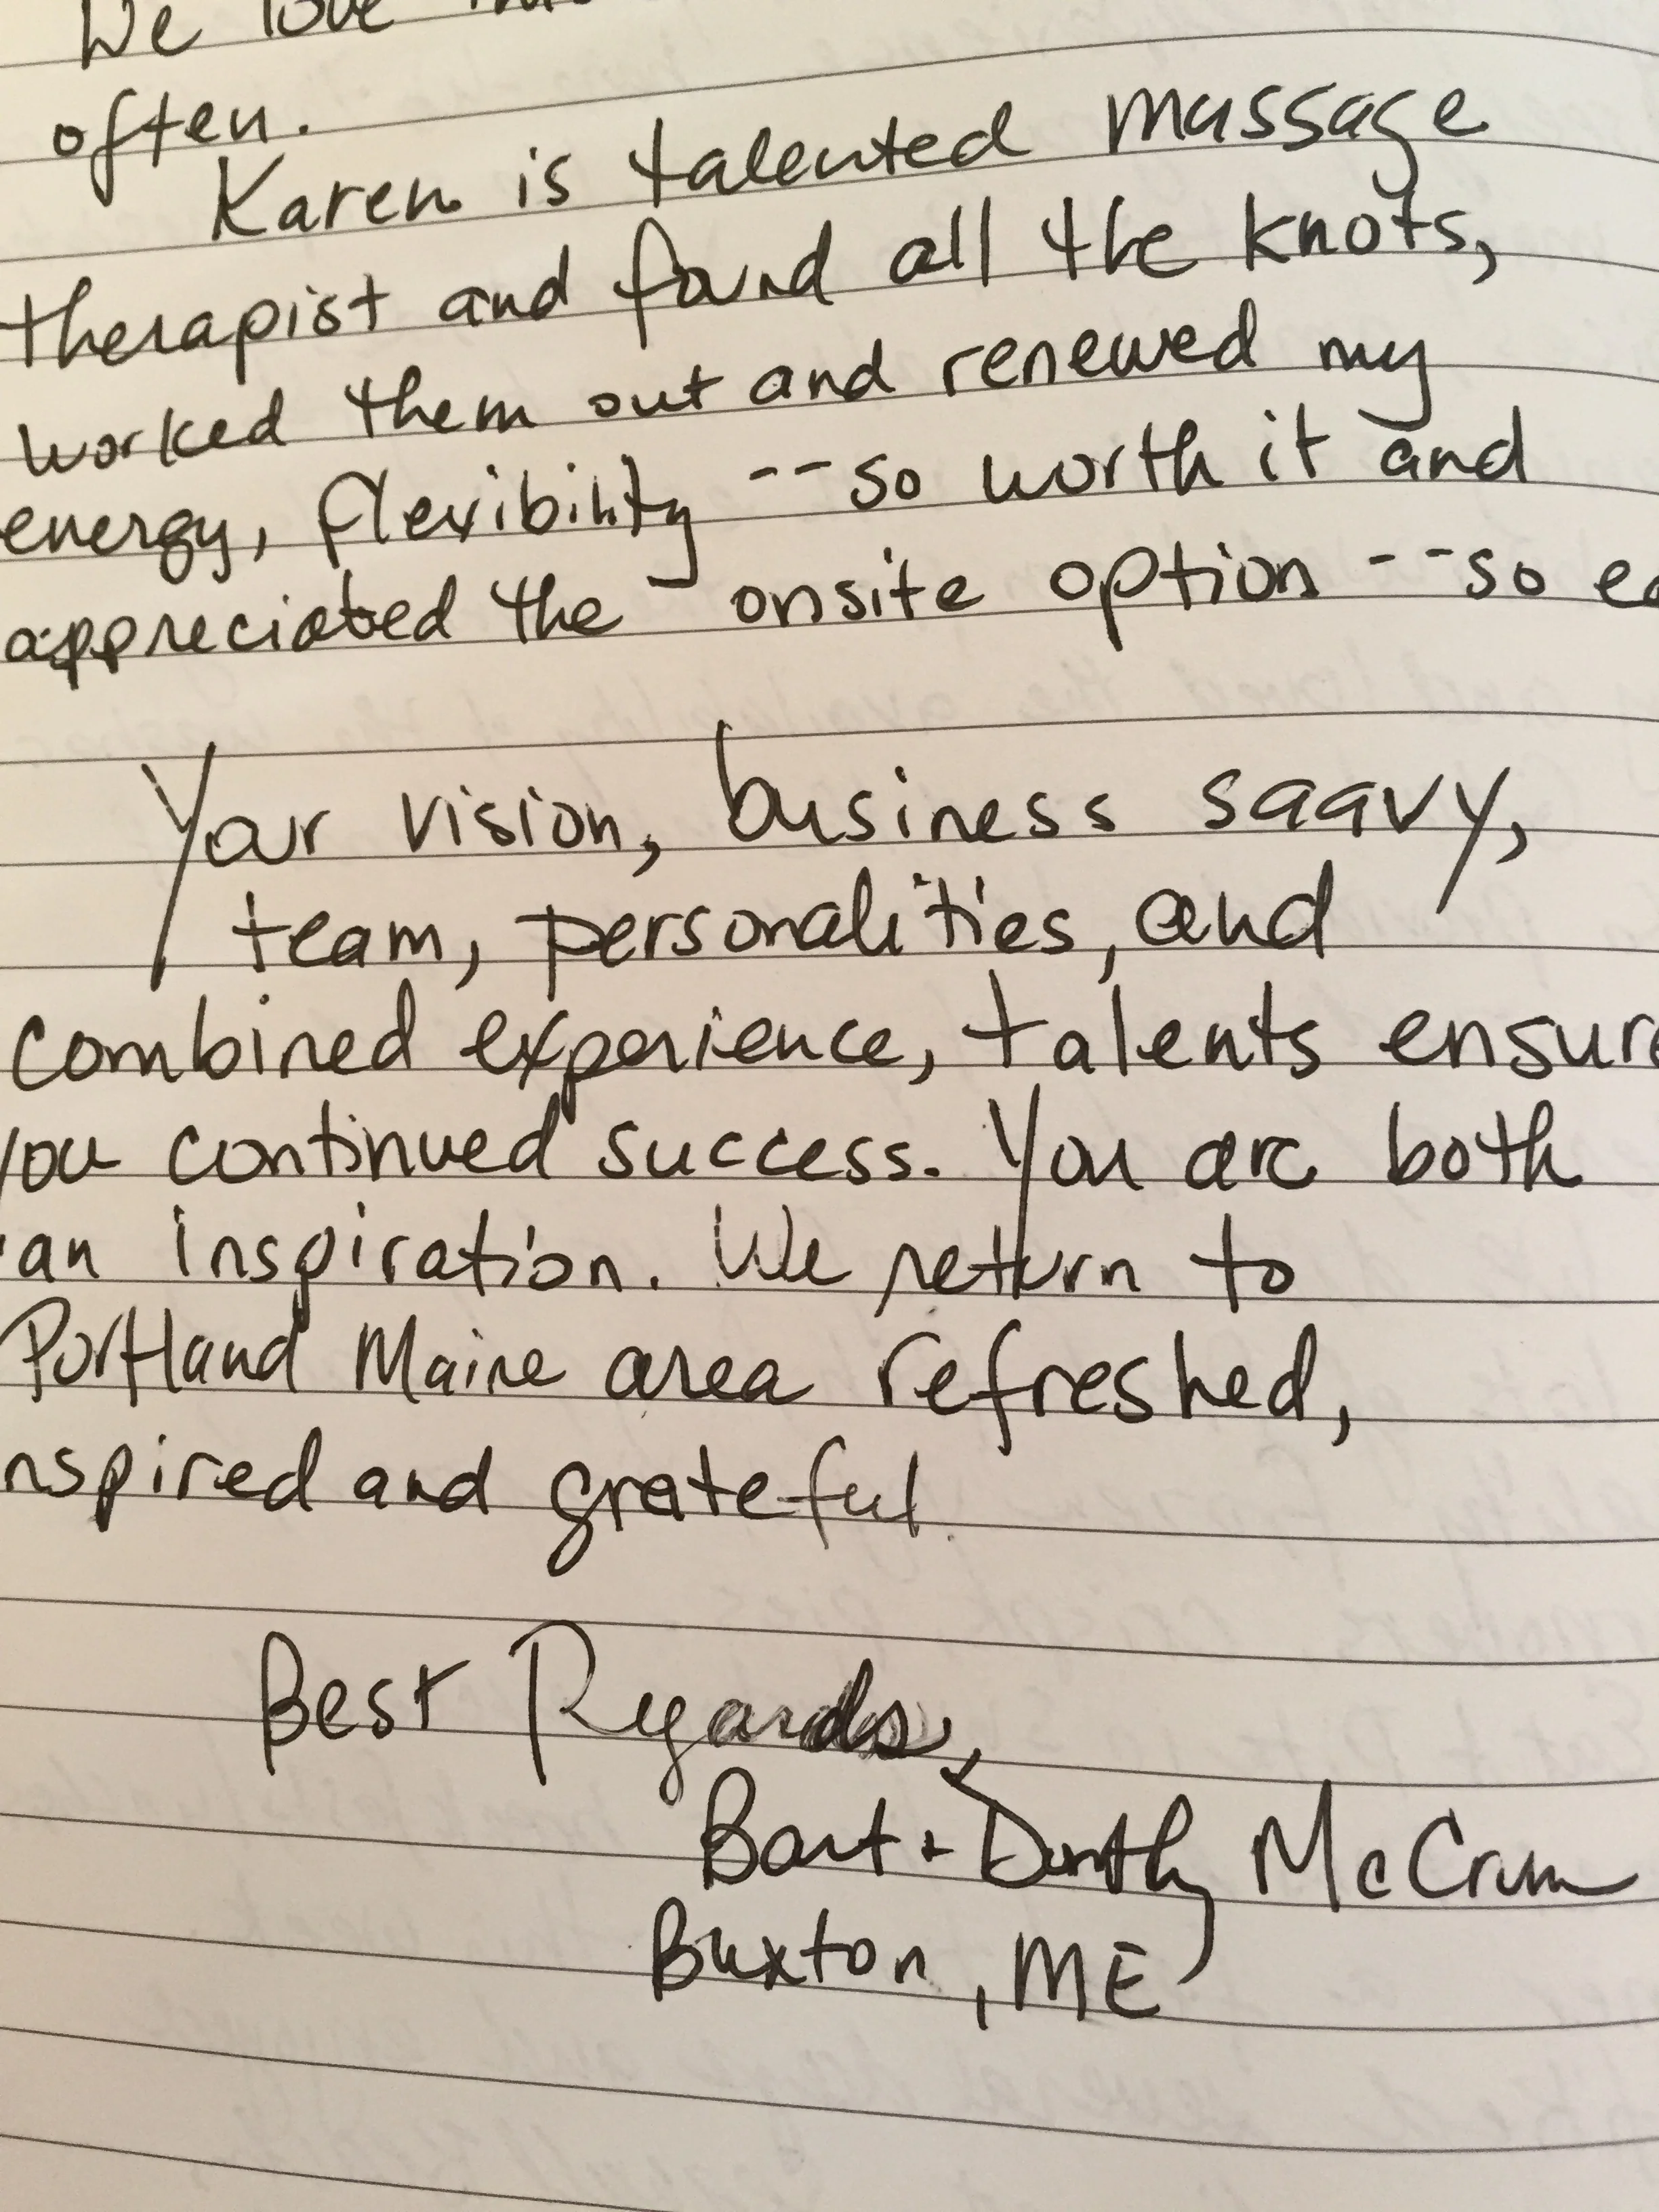 We love
often.
Karen is talented massage
therapist and found all the knots,
worked them out and renewed my
energy, flexibility --so worth it and
appreciated the onsite option --so ea
Your vision, business saavy,
team, personalities, and
combined experience, talents ensure
you continued success. You are both
an inspiration. We return to
Portland Maine area refreshed,
nspired and grateful.
Best Regards,
Bart + Dorothy McCrum
Buxton, ME